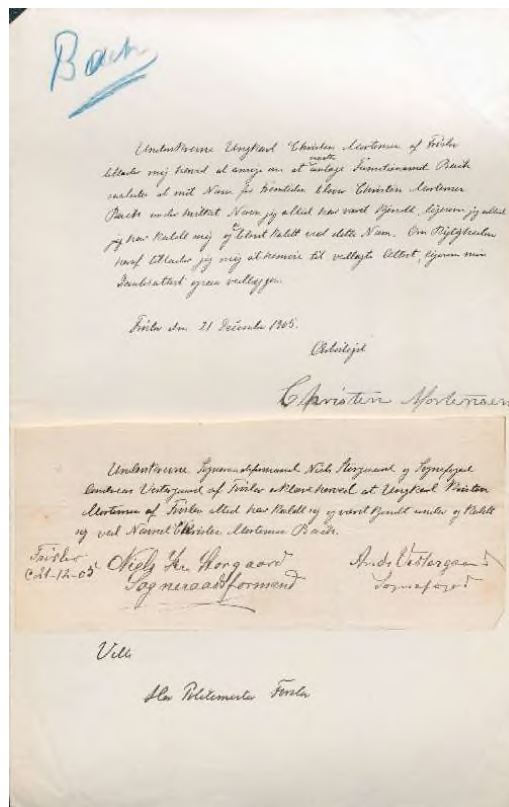 Bach
Underskrevne Ungkarl Christen Mortensen af Fristrup
tillader mig herved at ansøge om at maatte antage Familienavnet Bach
saaledes at mit Navn for Fremtiden bliver Christen Mortensen
Bach under hvilket Navn jeg altid har været kjendt, ligesom jeg altid
jeg har kaldt mig og blevet kaldt ved dette Navn. Om Rigtigheden
heraf tillader jeg mig at henvise til vedlagte Attest, ligesom min
Daabsattest ogsaa vedlægges.
den 21 December 1905.
Ærbødigst
Christen Mortensen
Underskrevne Sogneraadsformand Niels Korgaard og Sognefoged
Andreas Vestergaard af erklære herved at Ungkarl Kristen
Mortensen af altid har kaldt sig og været kjendt under og kaldt
sig ved Navnet Christen Mortensen Bach.
21-12-05 Niels Kr Korgaard Ands Vestergaard
Sogneraadsformand Sognefoged
Til
Hr Politimester